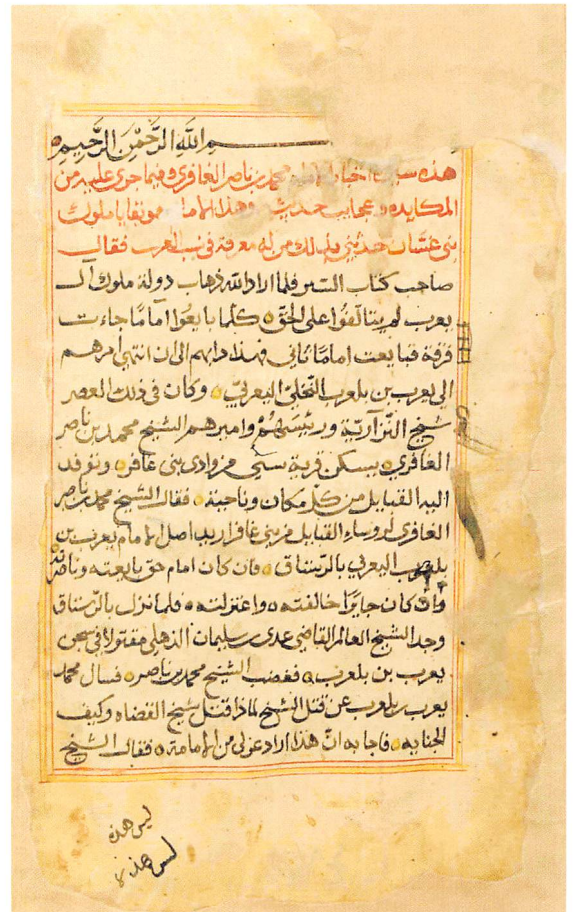 بسم الله الرَّحْمٰنِ الرَّحِيمِ
هذه سيرة اخبار الامام محمد بن ناصر الغافري وفيما جرى عليه من
المكايده وعجايب حديثه وهذا الامام من بقايا ملوك
بنى غسَّان حدثني بذلك من له معرفة في نسب العرب فقال
صاحب كتاب السّير فلما اراد الله ذهاب دولة ملوك آل
يعرب لم يتالَّفُوا على الحَقّ ه كلما بايعُوا اماما جاءت
فرقة فبايعت اماما ثاني فهذا دابهم الى ان انتهى امرهم
الى يعرب بن بلعرب اليعربيّ ه وكان في ذلك العصر
شيخ النّزآريّة ورئيسَهُمْ واميرهم الشيخ محمد بن ناصر
الغافري ه يسكن قرية من وادى بنى غافر ه وتوفد
اليه القبايل من كلّ مكان وناحية ه فقال الشيخ محمد بن ناصر
الغافرى لروساء القبايل من بنى غافر اريد اصل الامام يعرب بن
بلعرب اليعربي بالرّستاق ه فان كان امام حق بايعته وناصرته
وان كان جايرًا خالفته ه واعتزلته ه فلما نزل بالرّستاق
وجد الشيخ العالم القاضي عدى بن سليمان الذهلي مقتولا في سجن
يعرب بن بلعرب ه فغضب الشيخ محمد بن ناصر ه فسال محمد
يعرب بن بلعرب عن قتل الشيخ لماذا قتل شيخ القضاه وكيف
الجنايه ه فاجابه انّ هذا اراد عزلى من الامامة ه فقال الشيخ
ليس هذه
ليس هذه لا